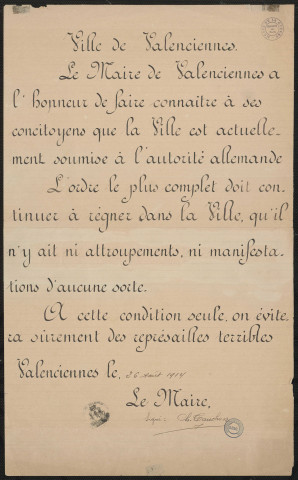 Ville de Valenciennes.
Le Maire de Valenciennes a
l'honneur de faire connaître à ses
concitoyens que la Ville est actuelle-
ment soumise à l'autorité allemande
L'ordre le plus complet doit con-
tinuer à régner dans la Ville, qu'il
n'y ait ni attroupements, ni manifesta-
tions d'aucune sorte.
A cette condition seule, on évite-
ra sûrement des représailles terribles
Valenciennes le, 26 août 1914
Le Maire,
Signé: